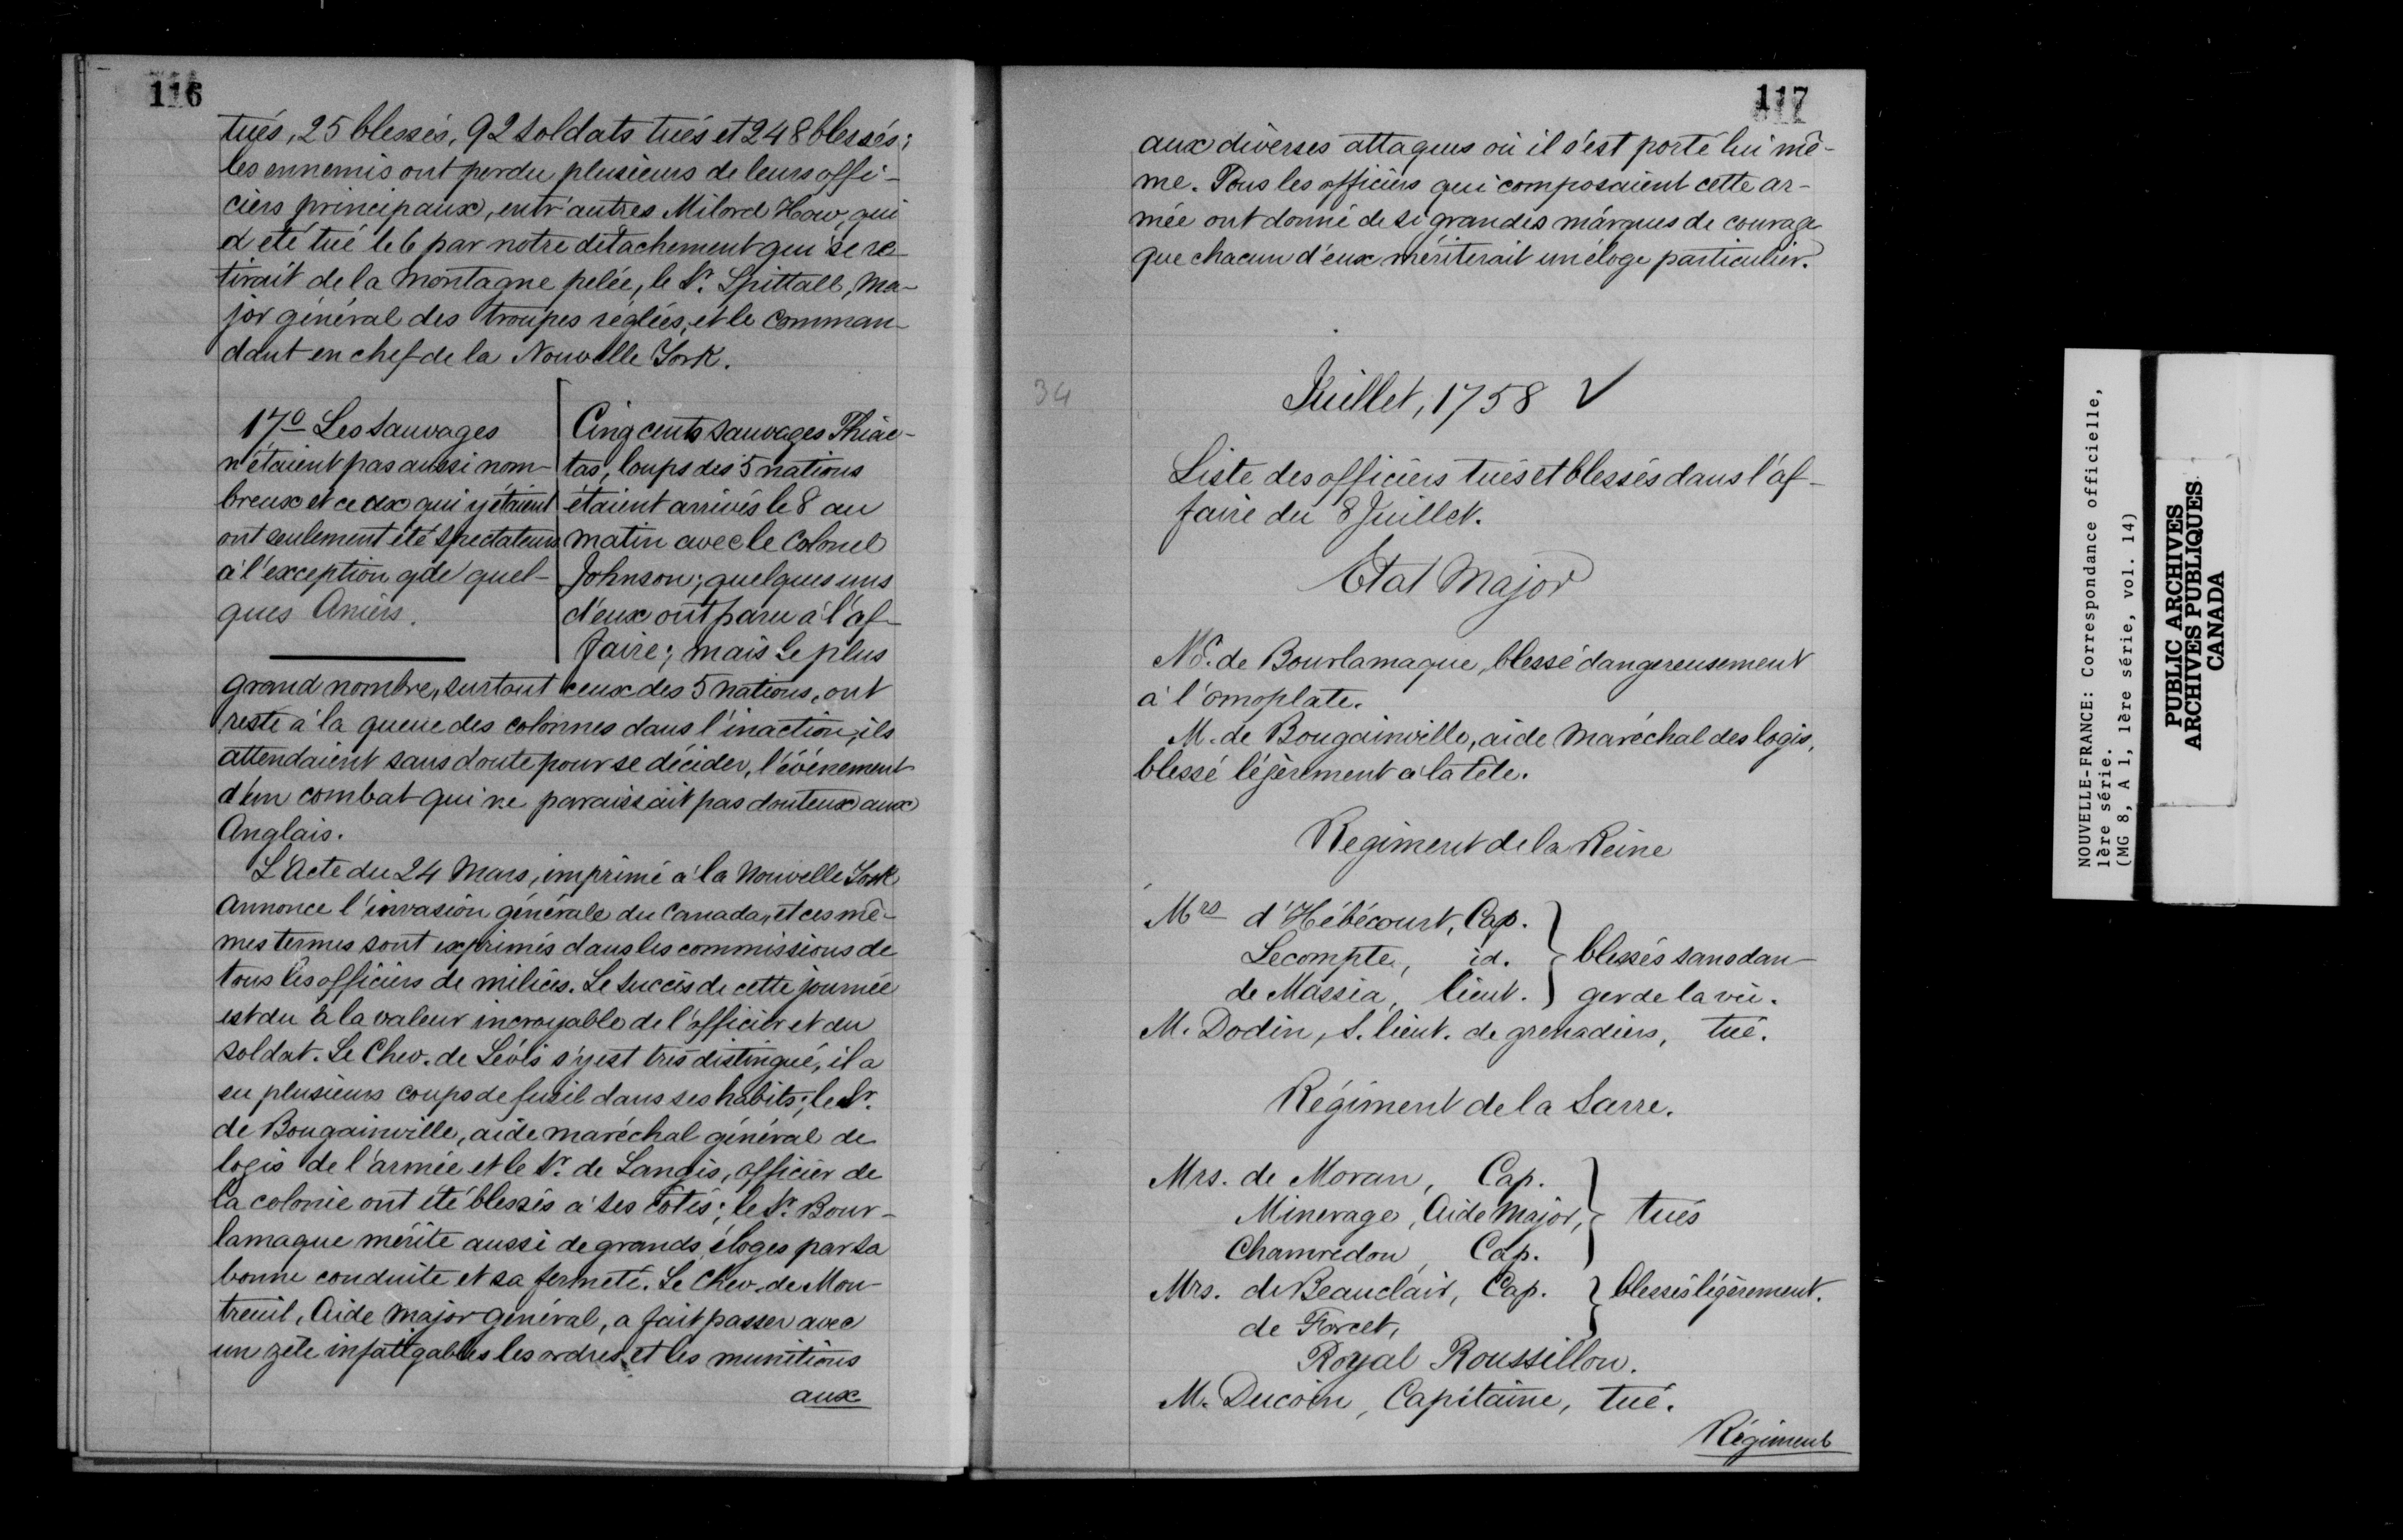 116
tués, 25 blessés, 92 soldats tués et 248 blessés;
les ennemis ont perdu plusieurs de leurs offi-
ciers principaux, entr'autres Milord How, qui
a été tué le 6 par notre détachement qui se re-
tirait de la Montagne pelée, le Sr. Spittall, Ma-
jor général des troupes réglées, et le comman-
dant en chef de la Nouvelle York.
17o Les sauvages
n'étaient pas aussi nom-
breux et ceux qui y étaient
ont seulement été spectateurs
à l'exception de quel-
ques Aniers.
Cinq cents sauvages Thiac-
tas, loups des 5 nations
étaient arrivés le 8 au
matin avec le Colonel
Johnson; quelques uns
d'eux ont paru à l'af-
faire; mais le plus
grand nombre, surtout ceux des 5 nations, ont
resté à la queue des colonnes dans l'inaction, ils
attendaient sans doute pour se décider, l'événement
d'un combat qui ne paraissait pas douteux aux
Anglais.
L'Acte du 24 Mars, imprimé à la Nouvelle York
annonce l'invasion générale du Canada, et ces mê-
mes termes sont exprimés dans les commissions de
tous les officiers de milices. Le succès de cette journée
est du à la valeur incroyable de l'officier et du
soldat. Le Chev. de Lévis s'y est très distingué, il a
eu plusieurs coups de fusil dans ses habits; le Sr.
de Bougainville, aide maréchal général de
logis de l'armée et le Sr. de Langis, officier de
la colonie ont été blessés à ses côtés; le Sr. Bour-
lamaque mérite aussi de grands éloges par sa
bonne conduite et sa fermeté. Le Chev. de Mon-
treuil, Aide Major général, a fait passer avec
un zèle infatigables les ordres et les munitions
aux
117
aux diverses attaques où il s'est porté lui mê-
me. Tous les officiers qui composaient cette ar-
mée ont donné de si grandes marques de courage
que chacun d'eux mériterait un éloge particulier.
34
Juillet, 1758 ✓
Liste des officiers tués et blessés dans l'af-
faire du 8 Juillet.
Etat Major
Mr. de Bourlamaque, blessé dangereusement
à l'omoplate.
M. de Bougainville, aide Maréchal des logis,
blessé légèrement à la tête.
Regiment de la Reine
Mrs d'Hébécourt, Cap.
Lecompte, id. } blessés sans dan-
de Massia, lieut. } ger de la vie.
M. Dodin, S. lieut. de grenadiers, tué.
Régiment de la Sarre.
Mrs. de Moran, Cap.
Minerage, Aide Major, } tués
Chamredon, Cap.
Mrs. de Beauclair, Cap. } blessés légèrement.
de Forcet,
Royal Roussillon.
M. Ducoin, Capitaine, tué.
Régiment
NOUVELLE-FRANCE: Correspondance officielle,
1ère série.
(MG 8, A 1, 1ère série, vol. 14)
PUBLIC ARCHIVES
ARCHIVES PUBLIQUES
CANADA